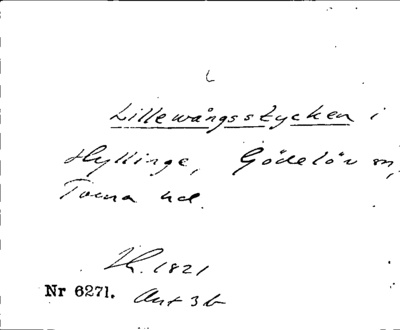 Lillewångsstycken i
Hyllinge, Gödelöv sn,
Torna hd.
Lh. 1821
Nr 6271. Akt 3b